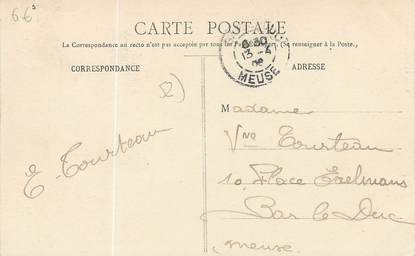 66
CARTE POSTALE
La Correspondance au recto n'est pas acceptée par tous les Pays étrangers. (Se renseigner à la Poste.)
CORRESPONDANCE
ADRESSE
13 - 4
MEUSE
E. Tourteau
Madame
Vve Tourteau
10 Place Exelmans
Bar le Duc
Meuse.